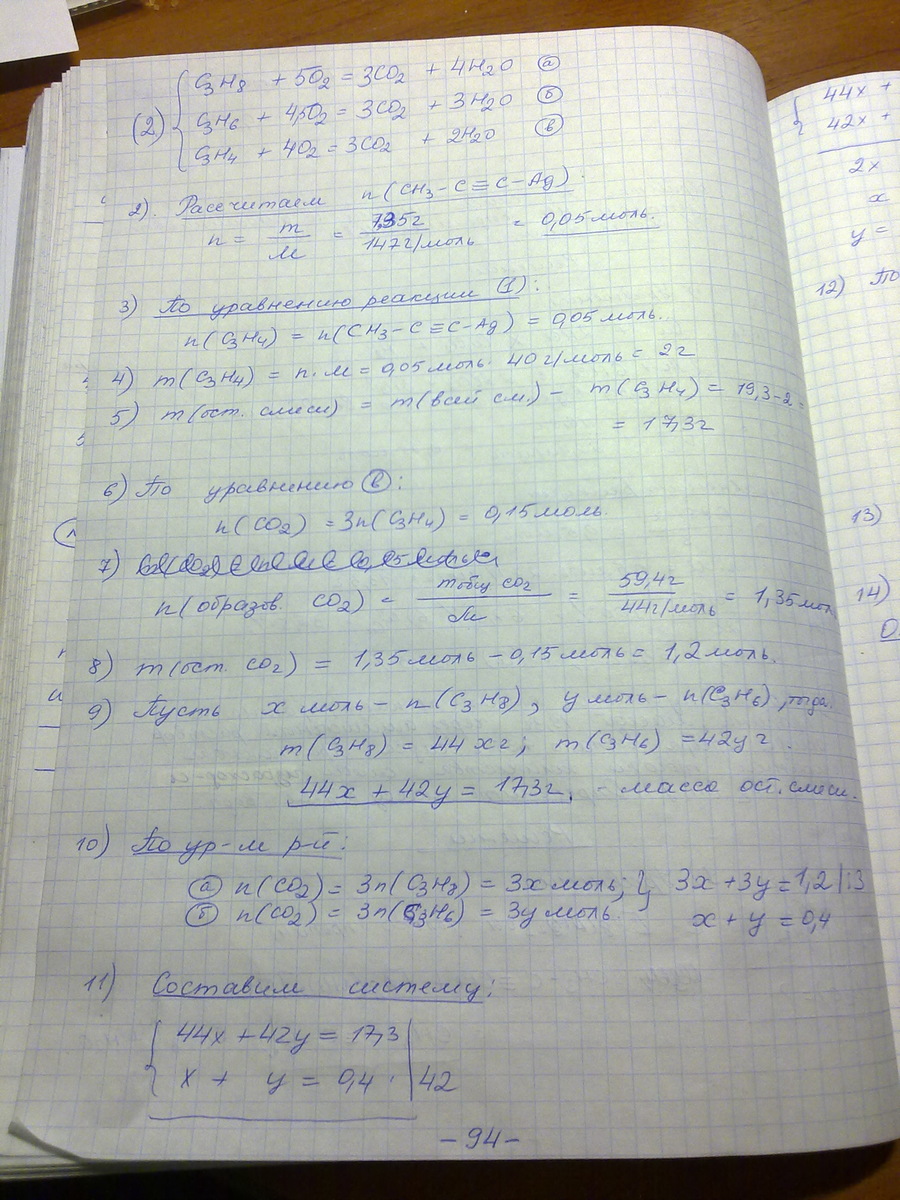 (2) { C3H8 + 5O2 = 3CO2 + 4H2O (а)
C3H6 + 4,5O2 = 3CO2 + 3H2O (б)
C3H4 + 4O2 = 3CO2 + 2H2O (в)
2). Рассчитаем n(CH3-C≡C-Ag).
n = m/M = 7,35г/147г/моль = 0,05моль.
3) По уравнению реакции (1):
n(C3H4) = n(CH3-C≡C-Ag) = 0,05моль.
4) m(C3H4) = n·M = 0,05моль·40г/моль = 2г
5) m(ост. смеси) = m(всей см.) - m(C3H4) = 19,3-2=
= 17,3г
6) По уравнению (в):
n(CO2) = 3n(C3H4) = 0,15моль.
7)
n(образов. CO2) = mобщ CO2/M = 59,4г/44г/моль = 1,35моль
8) m(ост. CO2) = 1,35моль - 0,15моль = 1,2моль.
9) Пусть x моль - n(C3H8), y моль - n(C3H6), тогда
m(C3H8) = 44xг; m(C3H6) = 42yг.
44x + 42y = 17,3г. - масса ост. смеси.
10) По ур-м р-й:
(а) n(CO2) = 3n(C3H8) = 3x моль; } 3x + 3y = 1,2 |:3
(б) n(CO2) = 3n(C3H6) = 3y моль. x + y = 0,4
11) Составим систему:
{ 44x + 42y = 17,3 |
x + y = 0,4 · | 42
-94-
{ 44x +
42x +
2x
x
y =
12) По
13)
14)